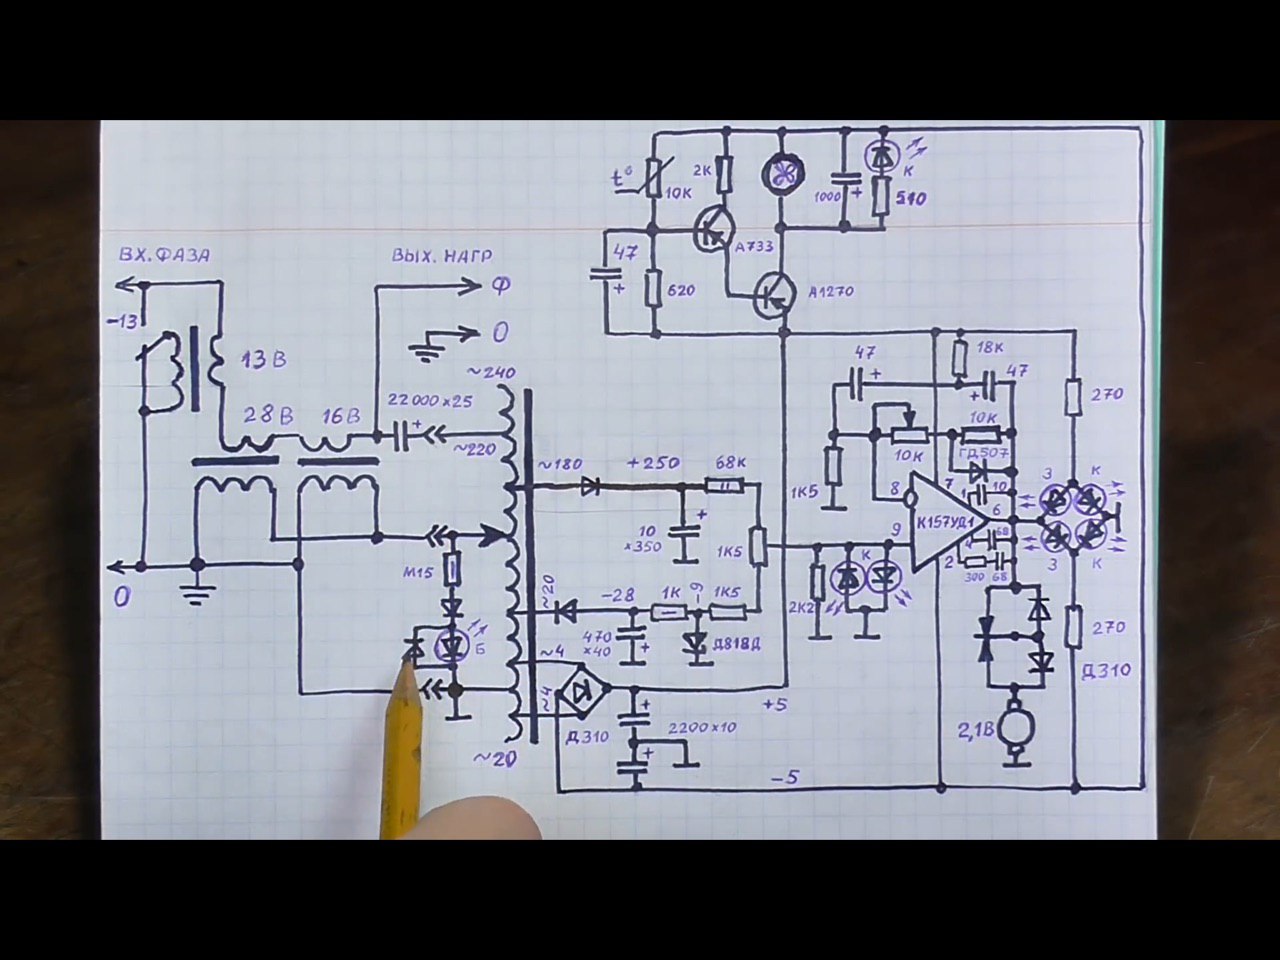 t°
10К
2К
1000 +
К
510
А733
47
+
620
А1270
ВХ. ФАЗА
ВЫХ. НАГР
Ф
0
~13
13В
28В
16В
22000×25
+
~240
~220
~180
+250
68К
10
×350
+
1К5
47
+
18К
47
+
10К
10К
ГД507
1К5
8
7
1
10
6
К157УД1
9
4
68
2
300
68
З
К
З
К
270
270
0
М15
Б
~20
-28
1К
-9
1К5
470
×40
+
Д818Д
2К2
К
~4
~4
Д310
+
2200×10
+
+5
-5
2,1В
Д310
~20